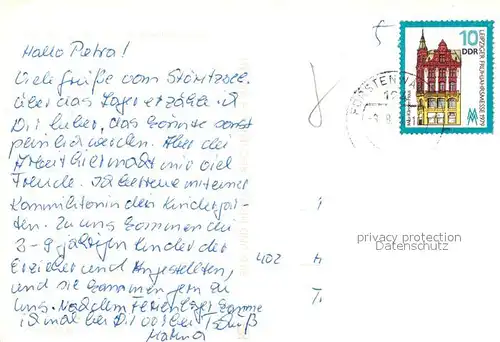 Hallo Petra!
Viele Grüße vom Störitzsee.
Über das Lager erzähle ich
Dir lieber, das könnte sonst
peinlich werden. Aber die
Arbeit hier macht mir viel
Freude. Ich betreue mit einer
Kommilitonin den Kindergar-
ten. Zu uns kommen die
3-9 jährigen Kinder der
Erzieher und Angestellten,
und sie kommen gern zu
uns. Nach dem Ferienlager komme
ich mal bei Dir vorbei Tschüß
402
10
DDR
LEIPZIGER FRÜHJAHRSMESSE 1979
privacy protection
Datenschutz